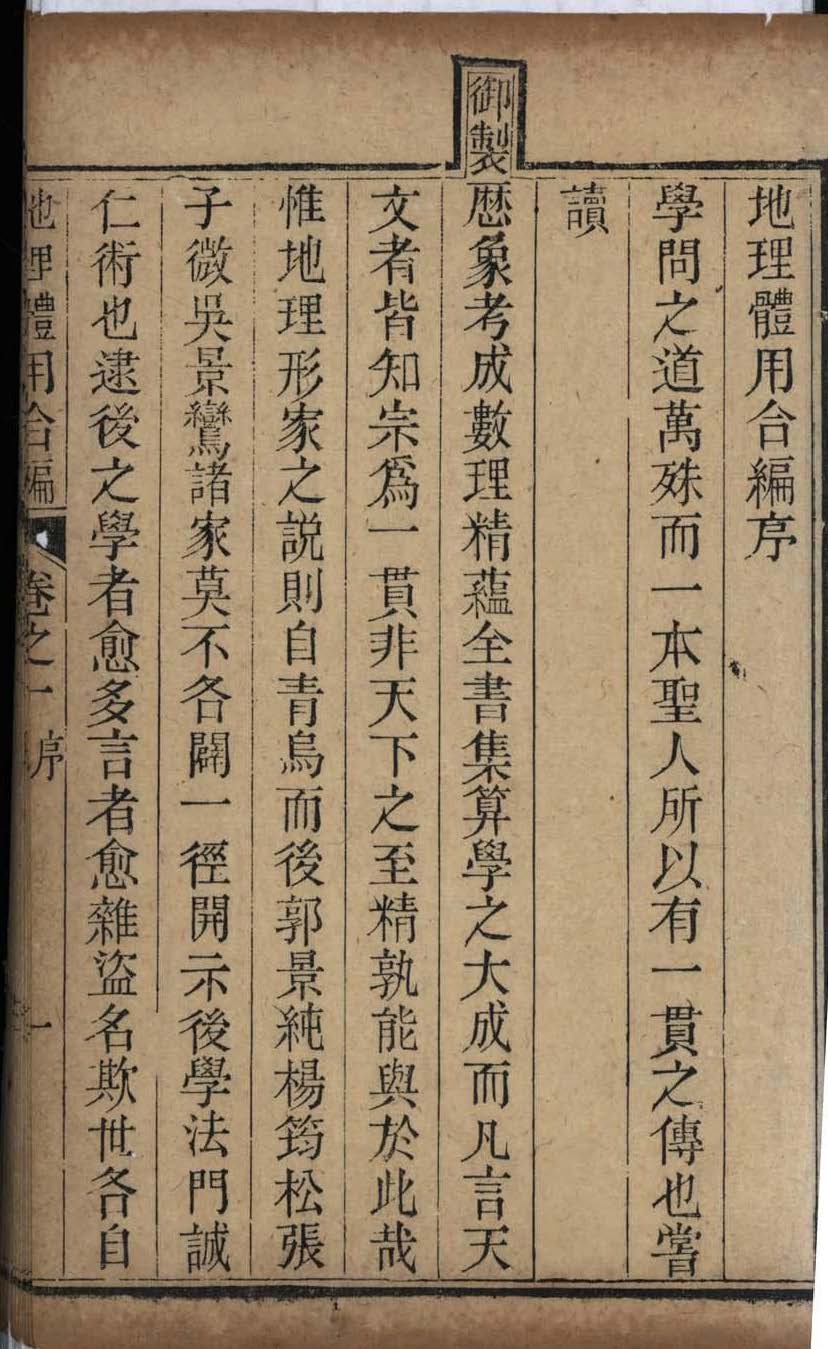 地理體用合編序
學問之道萬殊而一本聖人所以有一貫之傳也嘗
讀
御製
歴象考成數理精蘊全書集算學之大成而凡言天
文者皆知宗爲一貫非天下之至精孰能與於此哉
惟地理形家之説則自青烏而後郭景純楊筠松張
子微吳景鸞諸家莫不各闢一徑開示後學法門誠
仁術也逮後之學者愈多言者愈雜盜名欺世各自
地理體用合編 卷之一 序 一